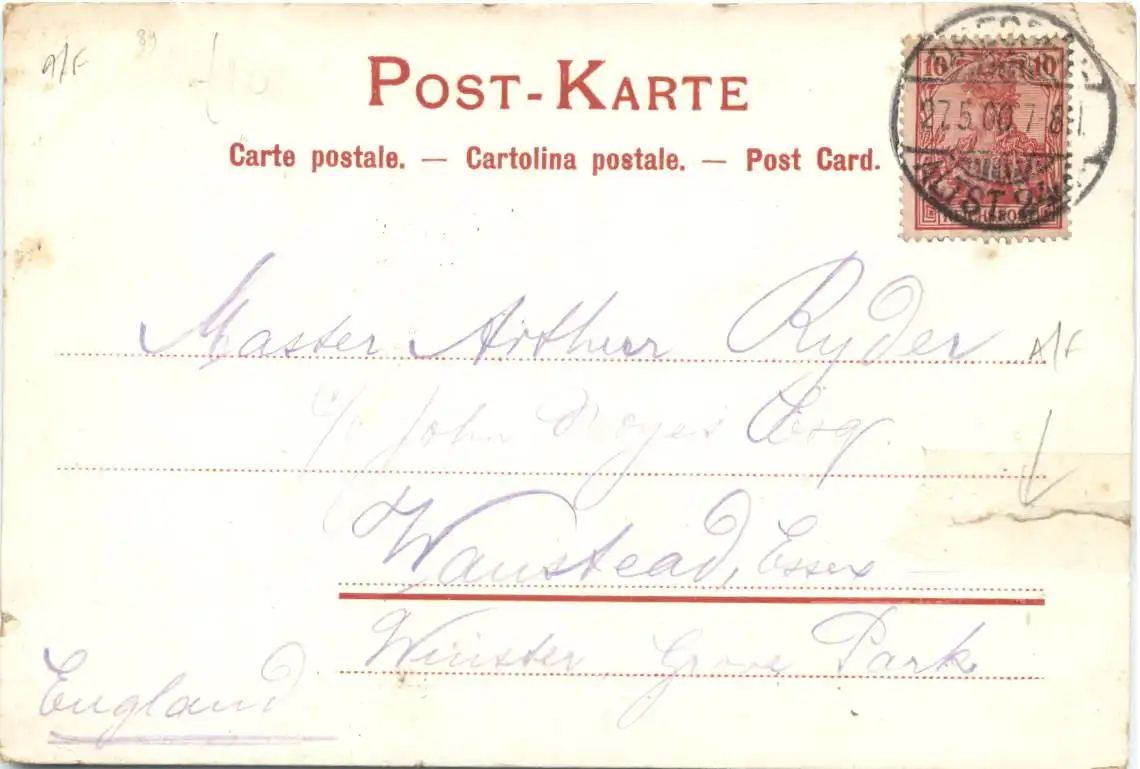 a/F
89
POST-KARTE
Carte postale. — Cartolina postale. — Post Card.
10 10
27.5.00. 7-8
ALTST. 24
REICHSPOST
Master Arthur Ryder
A/F
c/o John Noyes Esq.
Wanstead, Essex
Winster, Grove Park
England